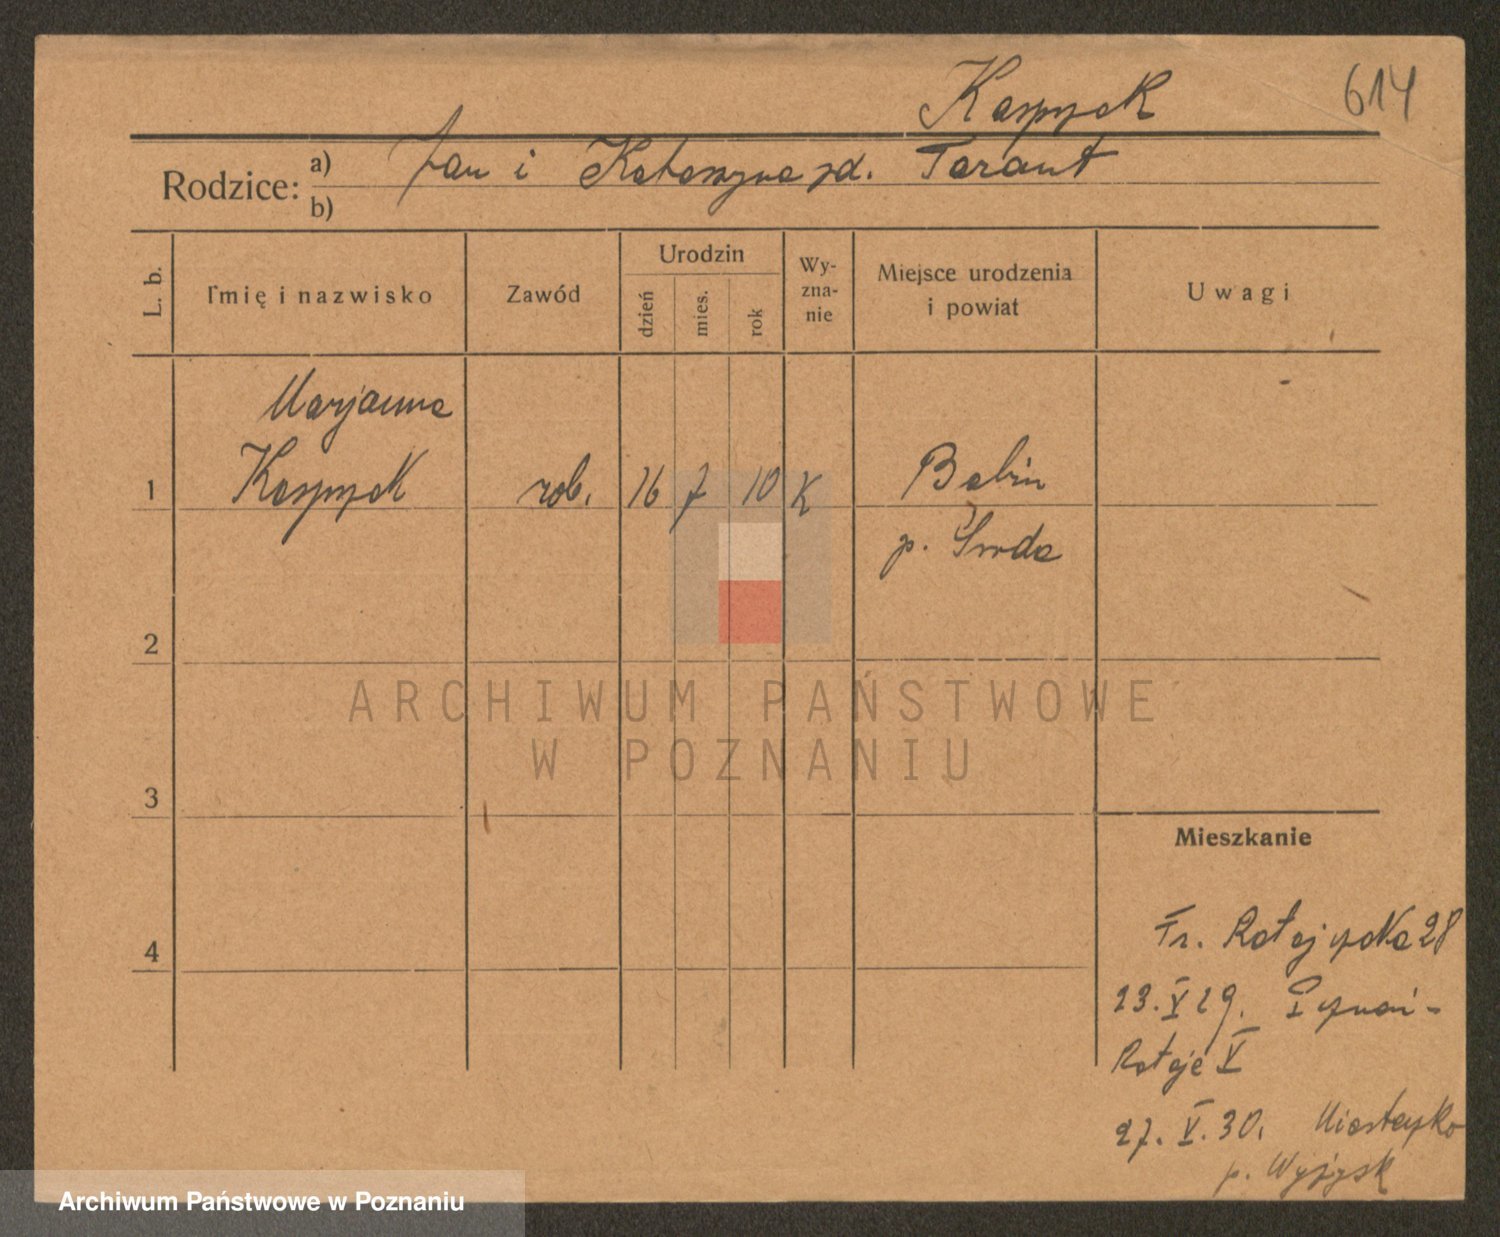 Kaspzak
614
Rodzice: a) Jan i Katarzyna zd. Tarant
b)
L. b.
Imię i nazwisko
Zawód
Urodzin
dzień
mies.
rok
Wy-
zna-
nie
Miejsce urodzenia
i powiat
Uwagi
Marjanna
1 Kaspzak rob. 16 7 10 K Babin
p. Środa
2
3
4
ARCHIWUM PAŃSTWOWE
W POZNANIU
Mieszkanie
Fr. Ratajczaka 28
23. V 29. Poznań -
Rataje V
27. V. 30. Miasteczko
p. Wyrzysk
Archiwum Państwowe w Poznaniu